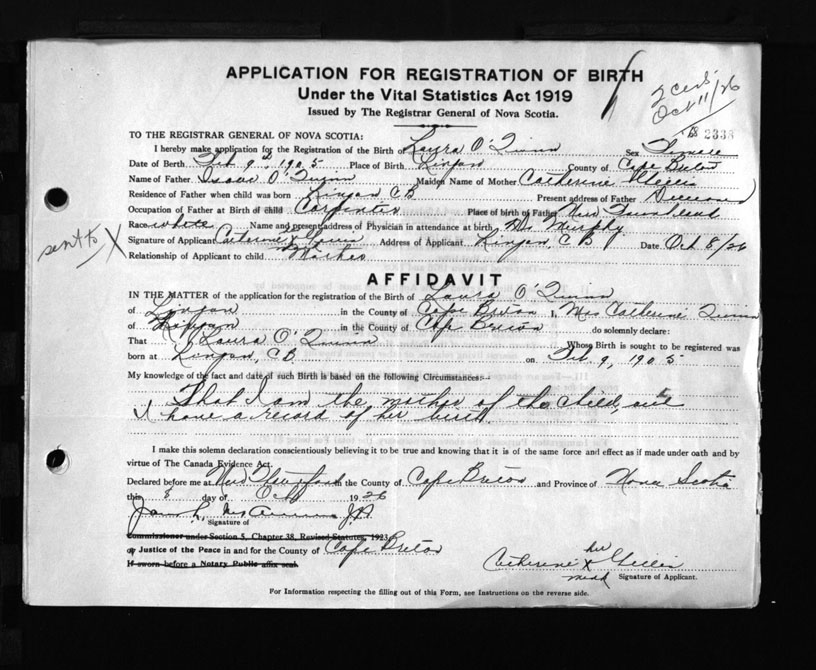 APPLICATION FOR REGISTRATION OF BIRTH
Under the Vital Statistics Act 1919
Issued by The Registrar General of Nova Scotia.
Oct 11/26
TO THE REGISTRAR GENERAL OF NOVA SCOTIA:
I hereby make application for the Registration of the Birth of Laura O'Quinn Sex Female
Date of Berth Feb 9th 1905 Place of Birth Lingan County of Cape Breton
Name of Father Isaac O'Quinn Maiden Name of Mother Catherine
Residence of Father when child was born Lingan CB Present address of Father Deceased
Occupation of Father at Birth of child Carpenter Place of birth of Father New Foundland
Race white Name and present address of Physician in attendance at birth Murphy
sent to X
Signature of Applicant Catherine X Address of Applicant Lingan, CB Date Oct 8/26
Relationship of Applicant to child Mother
AFFIDAVIT
IN THE MATTER of the application for the registration of the Birth of Laura O'Quinn
of Lingan in the County of Cape Breton I, Mrs Catherine Quinn
of Lingan in the County of Cape Breton do solemnly declare:
That Laura O'Quinn Whose Birth is sought to be registered was
born at Lingan, CB on Feb 9, 1905
My knowledge of the fact and date of such Birth is based on the following Circumstances:—
That I am the mother of the child, and
I have a record of her birth
I make this solemn declaration conscientiously believing it to be true and knowing that it is of the same force and effect as if made under oath and by
virtue of The Canada Evidence Act.
Declared before me at New in the County of Cape Breton and Province of Nova Scotia
this 8 day of Oct 1926
J P
Signature of
Commissioner under Section 5, Chapter 38, Revised Statutes, 1923
or Justice of the Peace in and for the County of Cape Breton
If sworn before a Notary Public affix seal.
her
Catherine X
mark Signature of Applicant.
For Information respecting the filling out of this Form, see Instructions on the reverse side.